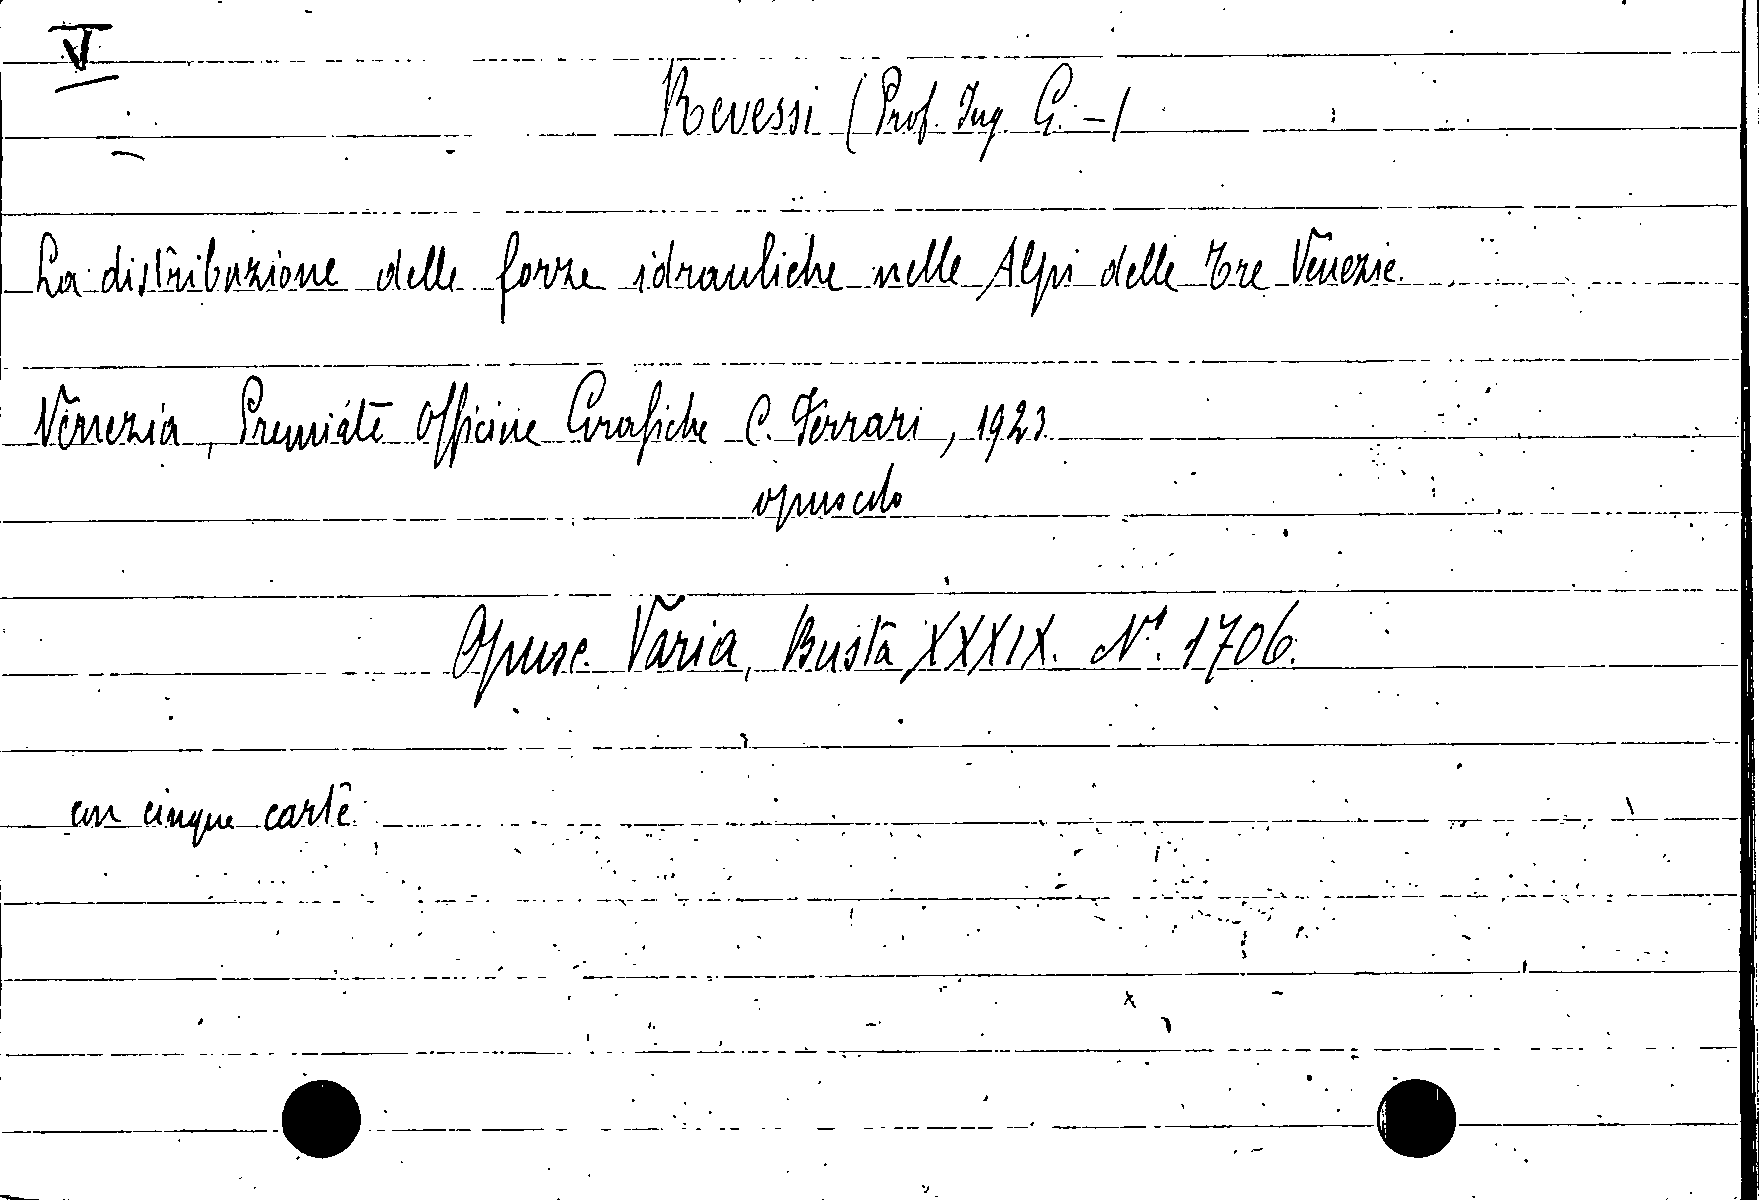 V
Revessi (Prof. Ing. G. -)
La distribuzione delle forze idrauliche nelle Alpi delle Tre Venezie.
Venezia, Premiate Officine Grafiche C. Ferrari, 1923
opuscolo
Opusc. Varia, Busta XXXIX. No. 1706.
con cinque carte